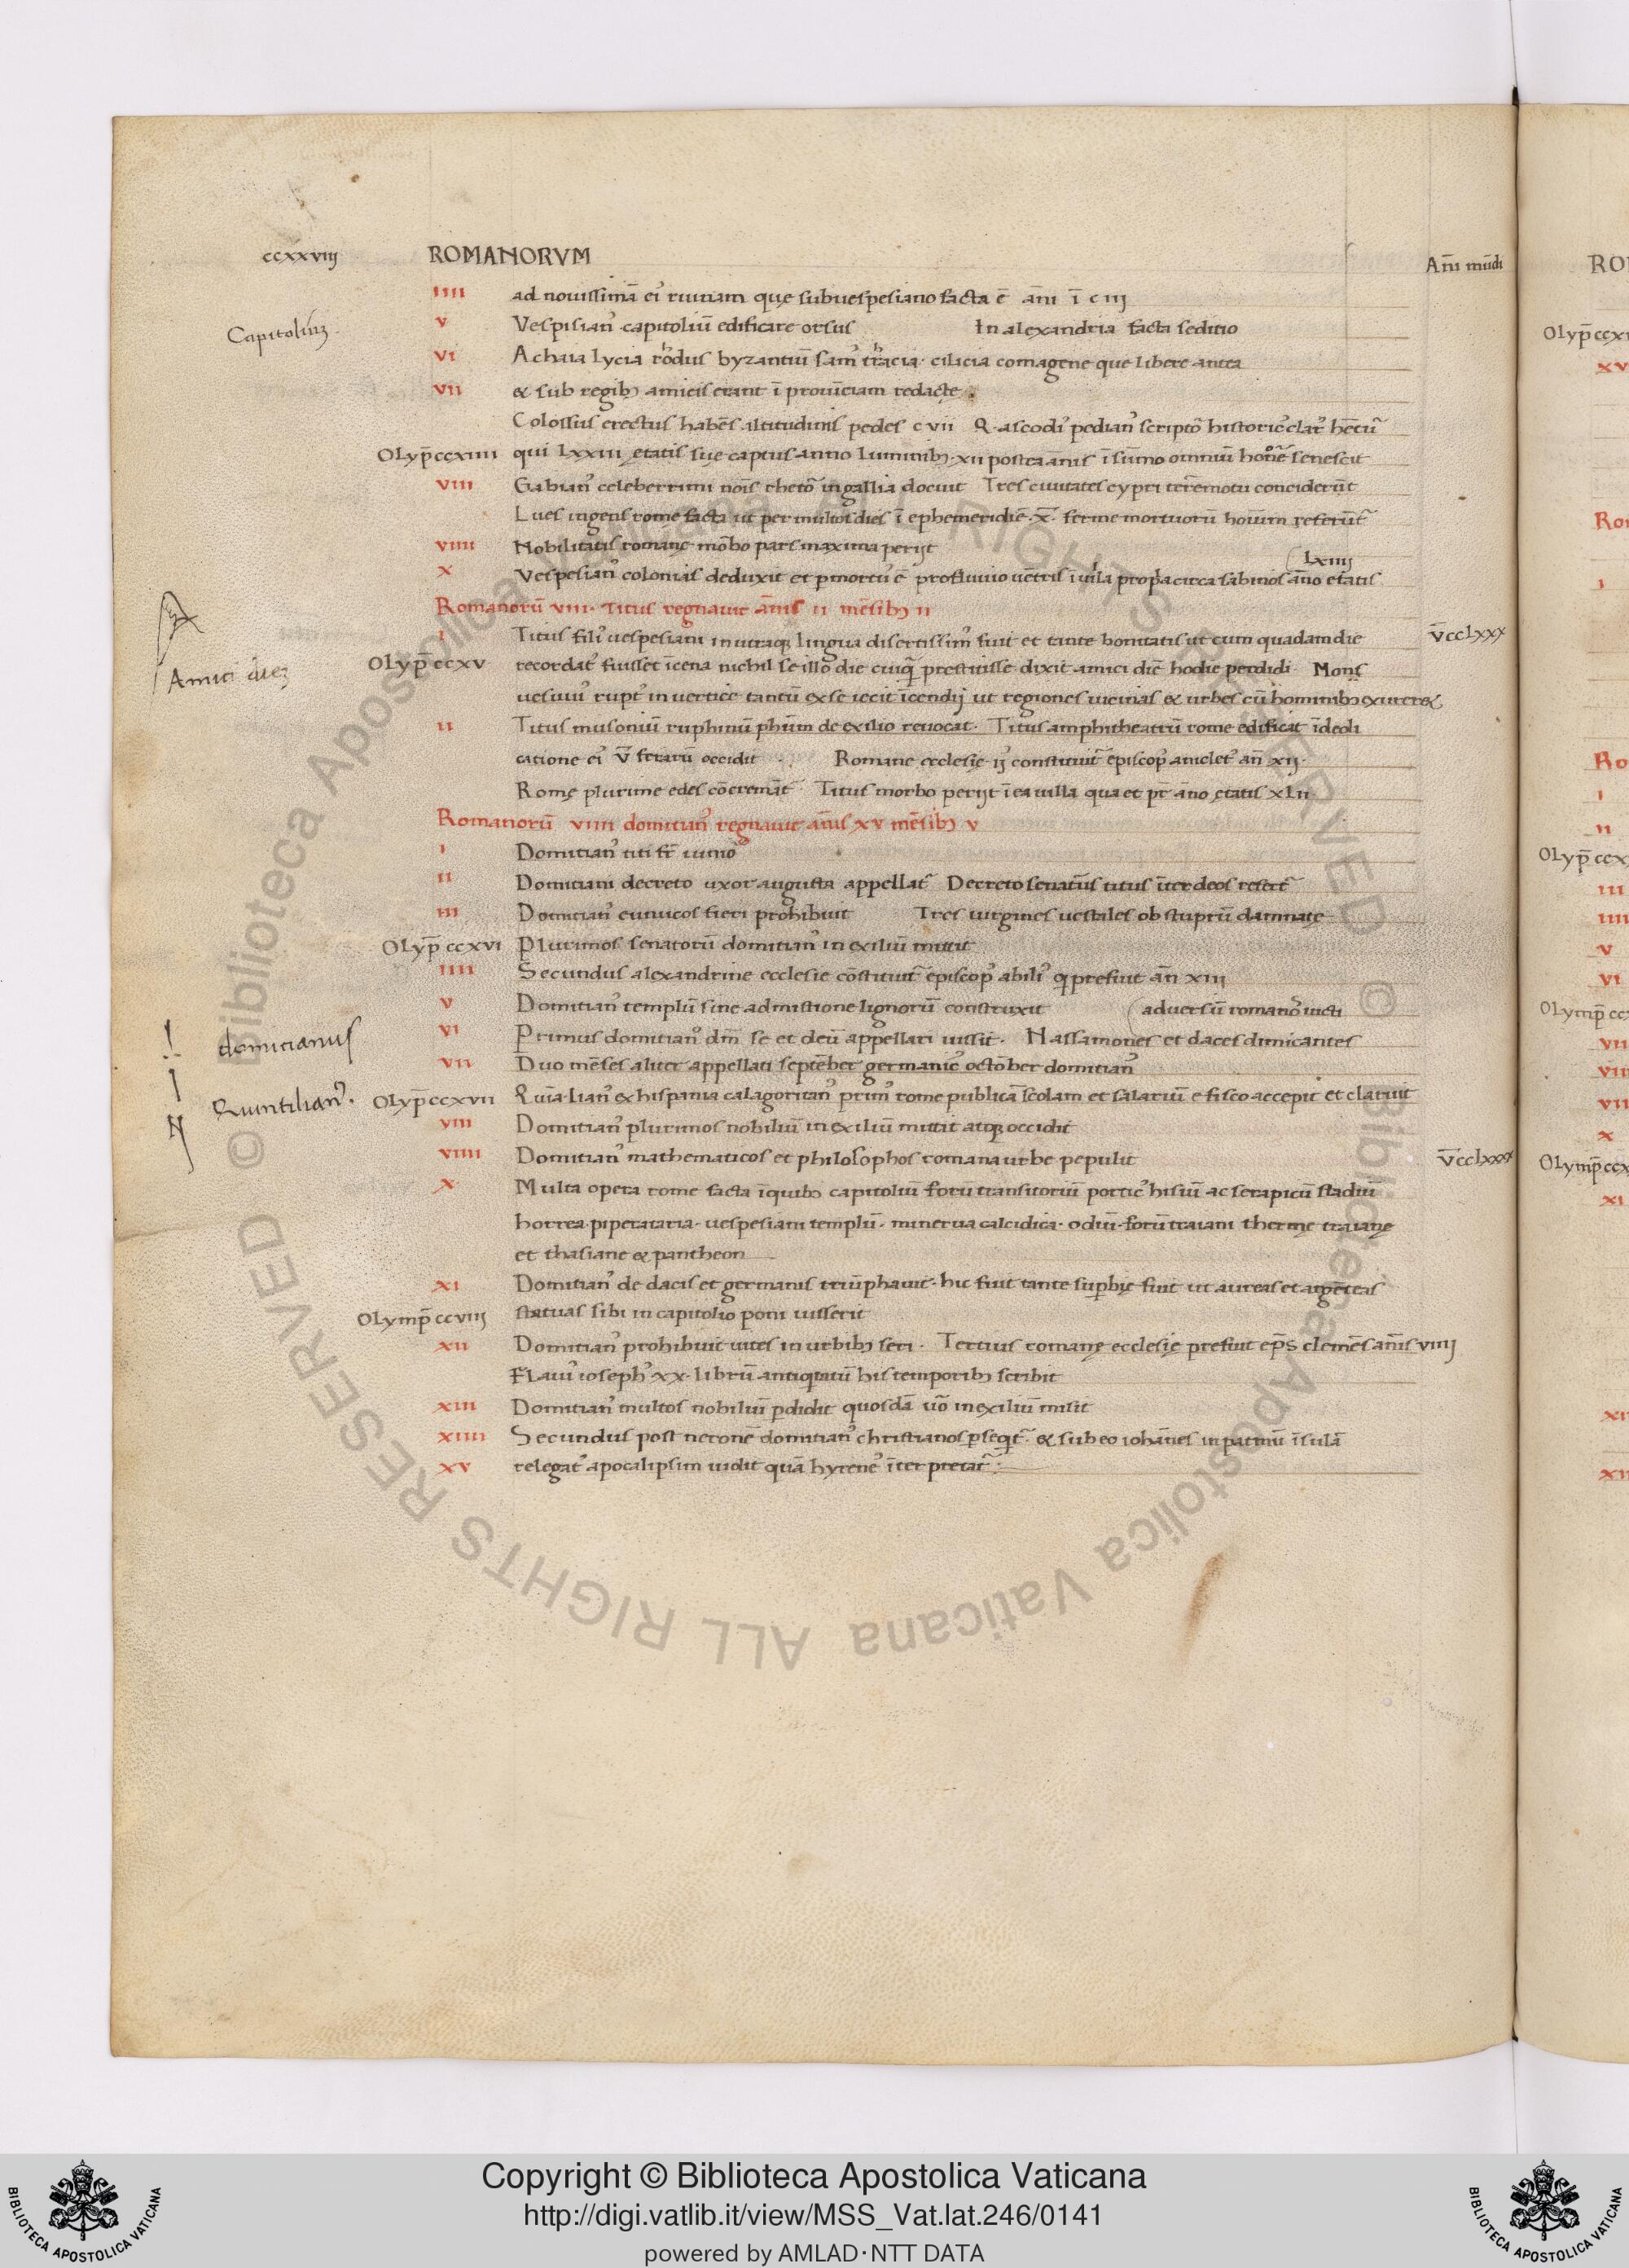 ccxxviij ROMANORVM Añi mũdi
IIII ad nouissimã ei' ruinam quę sub uespesiano facta ē añi ī c iij
Capitoliũ
V Vespisian' capitoliũ edificare orsus In alexandria facta seditio
VI Achaia lycia rhodus byzantiũ sam' thracia cilicia comagene que libere antea
VII & sub regib; amicis erant ī prouīciam redacte
Colossus erectus habēs altitudinis pedes c vii Q. ascodi' pedian' scriptõ historic' clar' hētũ
Olyp̄ ccxiiii qui lxxiii ętatis suę captus anno luminib; xii postea añis ī sũmo omniũ honorē senescit
VIII Gabian' celeberrimi nōis rhetõ in gallia docuit Tres ciuitates cypri terēmotu conciderũt
Lues ingens romę facta ut per multos dies ī ephemeridē x̄ ferme mortuorũ hoīum referũt
VIIII Nobilitatis romanę mõbo pars maxima perijt
lxiiij
X Vespesian' colonias deduxit et p mortu' ē profluuio uētris ī uilla propa circa sabinos año etatis
Romanorũ viii. Titus regnauit añis ii mēsib; ii
I Titus fili' uespesiani in utraq; lingua disertissim' fuit et tante bonitatis ut cum quadam die v̄cclxxx
Amici diez
Olyp̄ ccxv recordat' fuisset ī cena nichil se illo die cuiq̃ prestitisse dixit amici diē hodie perdidi. Mons
uesuui' rupt' in uertice tantũ ex se iecit īcendij ut regiones uicinas & urbes cũ hominib; exureret
II Titus musoniũ ruphinũ phũm de exilio reuocat. Titus amphitheatrũ rome edificat ī dedi
catione ei' v̄ ferarũ occidit Romane ecclesię ij constituit' episcop' aniclet' añ xij.
Romę plurime edes cõcremãt' Titus morbo perijt ī ea uilla qua et pr̄ año ętatis xlii
Romanorũ viiii domitian' regnauit añis xv mēsib; v
I Domitian' titi fr̄ iunio'
II Domitiani decreto uxor augusta appellat' Decreto senatus titus īter deos refert'
III Domitian' eunucos fieri prohibuit Tres uirgines uestales ob stuprũ damnatę
Olyp̄ ccxvi Plurimos senatorũ domitian' in exiliũ mittit
IIII Secundus alexandrine ecclesie cõstituit' episcop' abili' q prefuit añ xiii
V Domitian' templũ sine admistione lignorũ construxit (aduersũ romano' uicti
domitianus
VI Primus domitian' dm̄ se et deũ appellari iussit. Nassamones et daces dimicantes
VII Duo mēses aliter appellati septēber germanic' octõber domitian'
Quintilian'.
Olyp̄ ccxvii Quĩa lian' ex hispania calagoritan' prim' rome publicã scolam et salariũ e fisco accepit et claruit
VIII Domitian' plurimos nobiliũ in exiliũ mittit atq; occidit
VIIII Domitian' mathematicos et philosophos romana urbe pepulit v̄cclxxxx
X Multa opera rome facta ī quib; capitoliũ forũ transitoriũ portic' hisiũ ac serapicũ stadiũ
horrea piperataria. uespesiani templũ. minerua calcidica. odiũ. forũ traiani thermę traianę
et thasiane & pantheon
XI Domitian' de dacis et germanis triũphauit. hic fuit tante supbię fuit ut aureas et argēteas
Olymp̄ ccviij statuas sibi in capitolio poni iusserit
XII Domitian' prohibuit uites in urbib; seri. Tertius romanę ecclesię prefuit ep̄s clemēs añis viiij
Flaui' ioseph' xx. librũ antiqtatũ his temporib; scribit
XIII Domitian' multos nobiliũ pdidit quosdã uõ in exiliũ misit
XIIII Secundus post neronē domitian' christianos pseqit'. & sub eo iohānes in patmũ īsulã
XV relegat' apocalipsim uidit quã hyrene' īterpretat'.
Copyright © Biblioteca Apostolica Vaticana
http://digi.vatlib.it/view/MSS_Vat.lat.246/0141
powered by AMLAD·NTT DATA